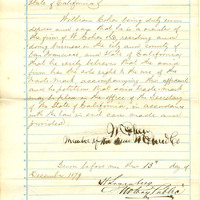 State of California
William Cohn being duly sworn
deposes and says that he is a member of
the firm of W. Cohn & Co. residing and
doing business in the City and County of
San Francisco, and State of California,
that he verily believes that the said
firm has the sole right to the use of the
trade mark accompanying this affidavit
and he
in the Office of the Secretary
of the State of California, in accordance
with the law in such case made and
provided.
W Cohn
Member of the firm W Cohn & Co.
Sworn before me this 13th day of
December 1879
Notary Public